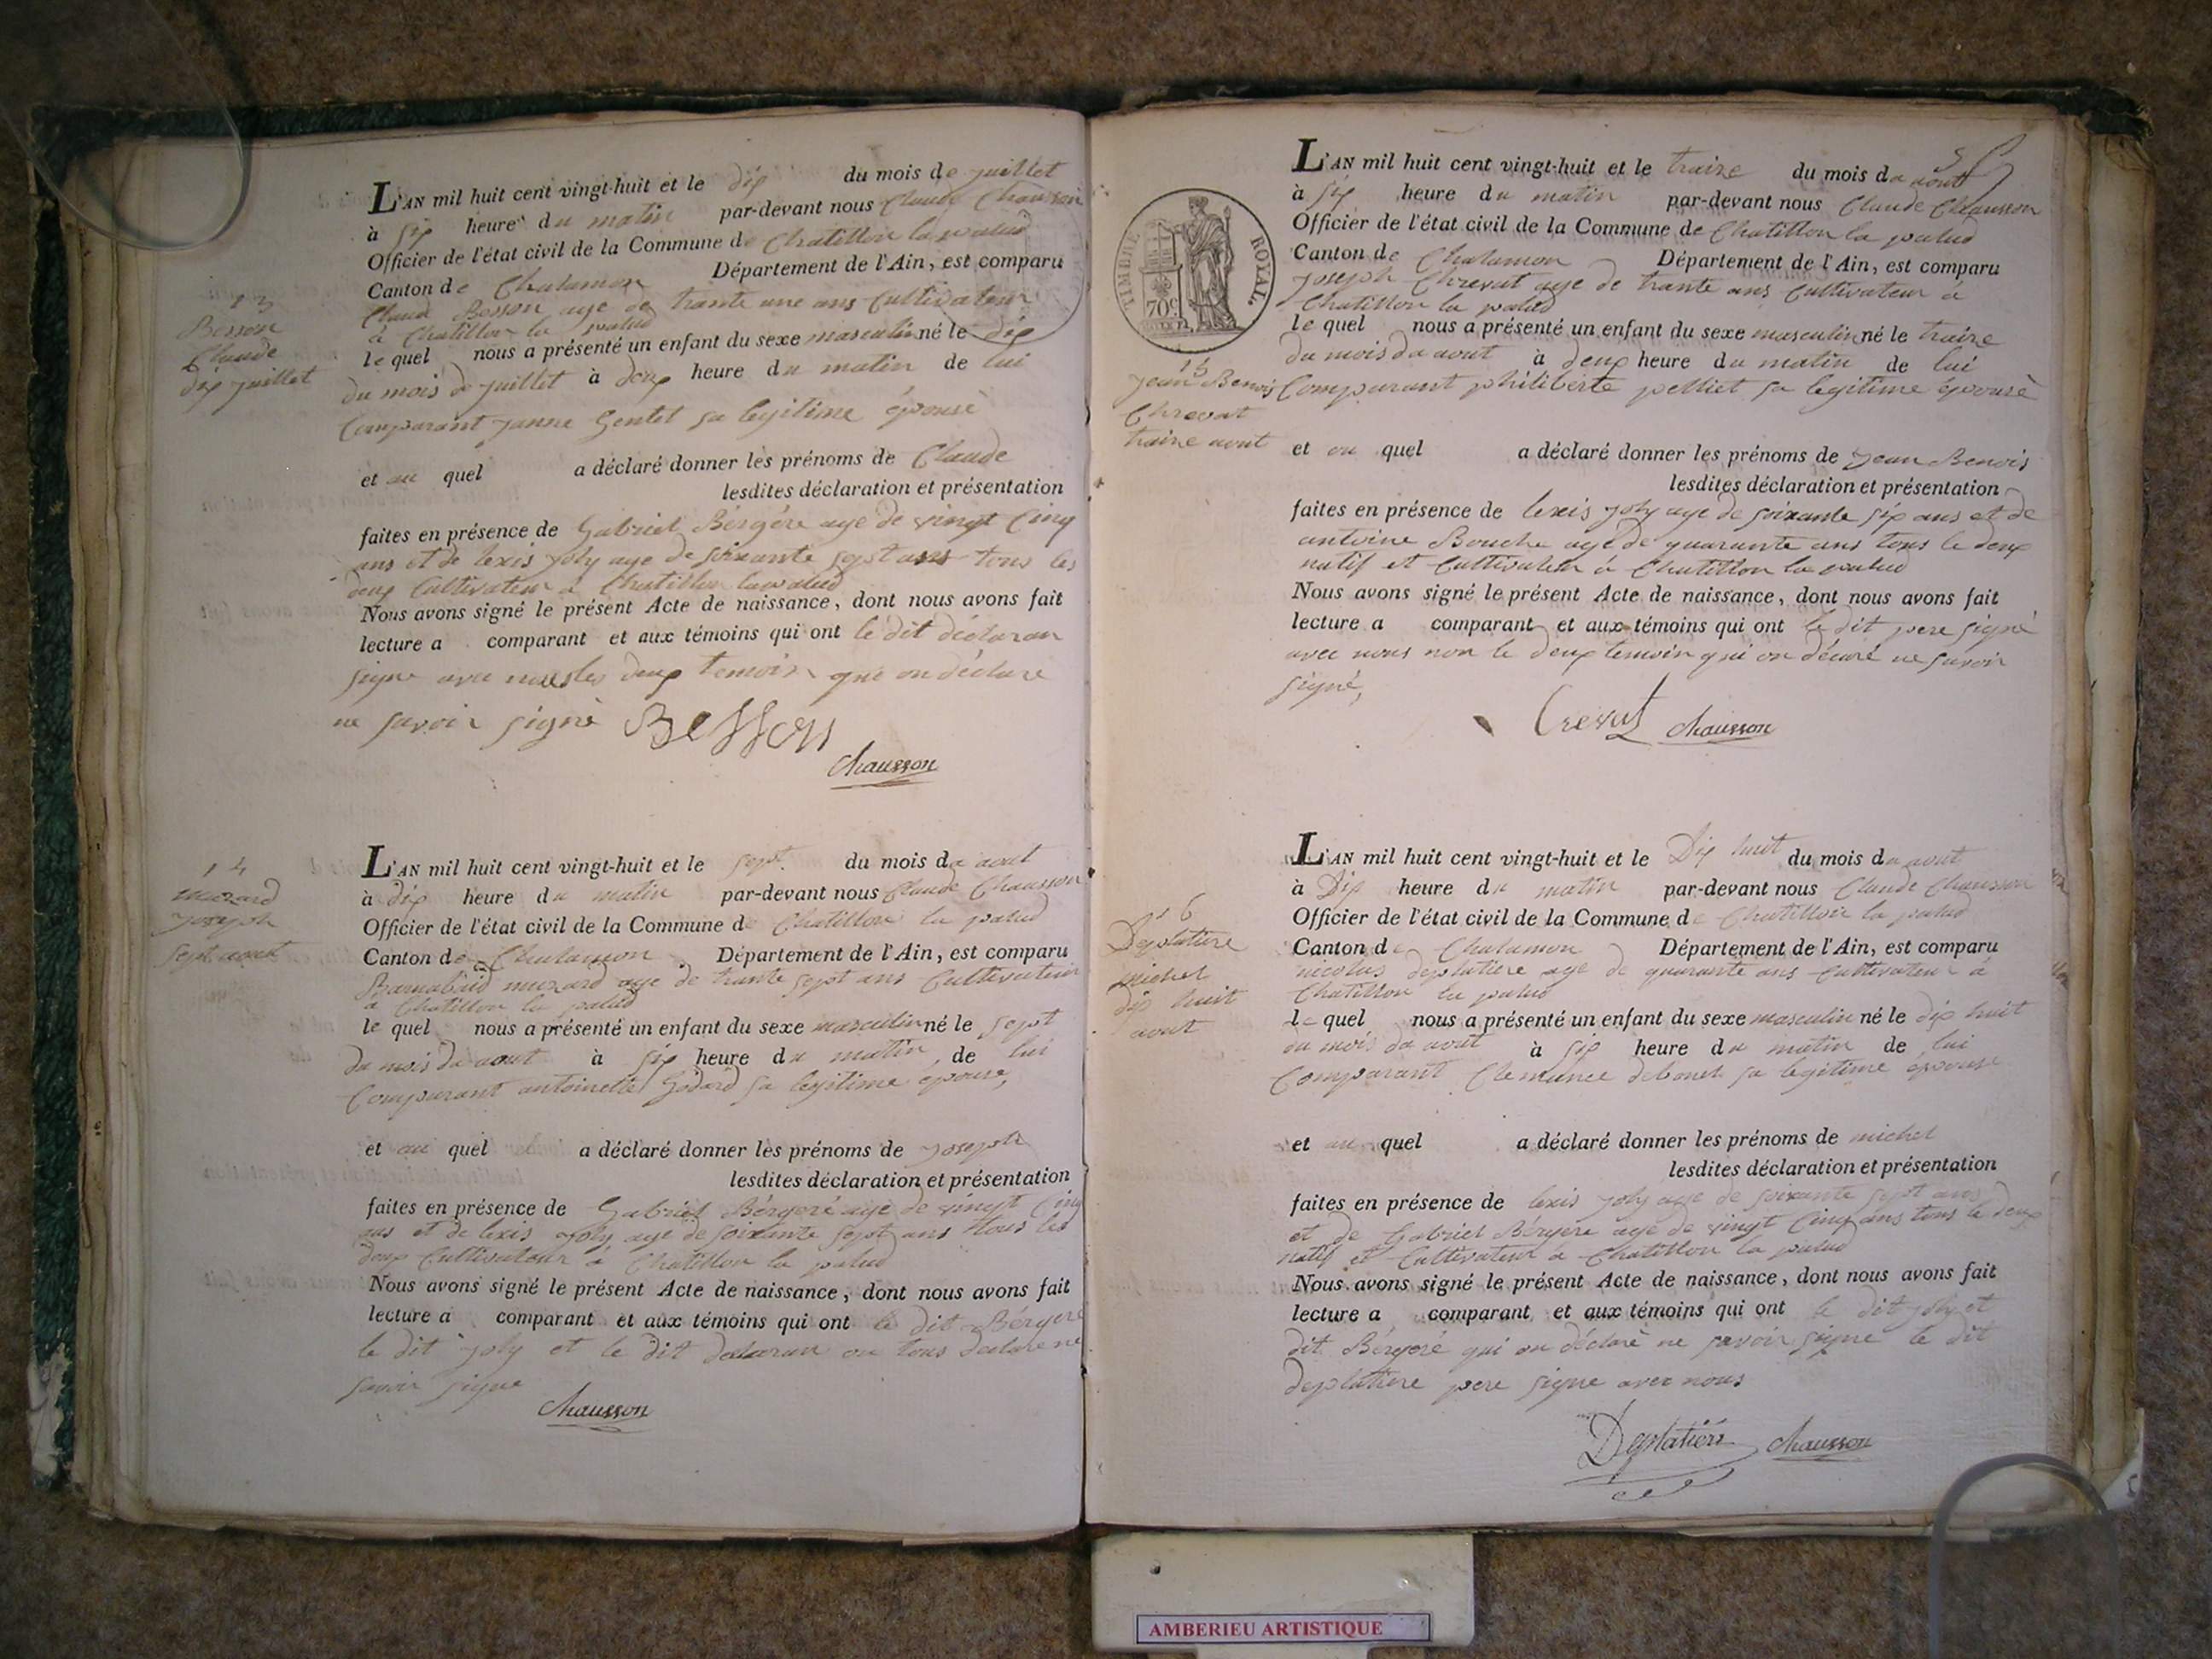 13
Besson
Claude
dix juillet
L'AN mil huit cent vingt-huit et le dix du mois de juillet
à six heure du matin par-devant nous Claude Chausson
Officier de l'état civil de la Commune de Chatillon la palud
Canton de Chalamon Département de l'Ain, est comparu
Claud Besson age de trante une ans Cultivateur
à Chatillon la palud
le quel nous a présenté un enfant du sexe masculin né le dix
du mois de juillet à deux heure du matin de lui
Comparant janne Gentet sa legitime épouse
et au quel a déclaré donner les prénoms de Claude
lesdites déclaration et présentation
faites en présence de Gabriel Bérgére age de vingt Cinq
ans et de lexis joly age de soixante sept ans tous les
deux Cultivateur à Chatillon la palud
Nous avons signé le présent Acte de naissance, dont nous avons fait
lecture a comparant et aux témoins qui ont le dit déclaran
signe avec nous les deux temoin qui on déclare
ne savoir signé Besson
Chausson
14
muzard
joseph
sept aout
L'AN mil huit cent vingt-huit et le sept du mois da aout
à dix heure du matin par-devant nous Claude Chausson
Officier de l'état civil de la Commune de Chatillon la palud
Canton de Chalamon Département de l'Ain, est comparu
Barnabaid muzard age de trante sept ans Cultivateur
a Chatillon la palud
le quel nous a présenté un enfant du sexe masculin né le sept
du mois da aout à six heure du matin, de lui
Comparant antoinette Godard sa legitime épouse,
et au quel a déclaré donner les prénoms de joseph
lesdites déclaration et présentation
faites en présence de Gabriel Bérgeré age de vingt Cinq
ans et de lexis joly age de soixante sept ans tous les
deux Cultivateur à Chatillon la palud
Nous avons signé le présent Acte de naissance, dont nous avons fait
lecture a comparant et aux témoins qui ont le dit Bérgere
le dit joly et le dit declaran on tous declare ne
savoir signe
Chausson
TIMBRE ROYAL
70c
15
jean Benois
Chrevat
traize aout
L'AN mil huit cent vingt-huit et le traize du mois da aout
à six heure du matin par-devant nous Claude Chausson
Officier de l'état civil de la Commune de Chatillon la palud
Canton de Chalamon Département de l'Ain, est comparu
joseph Chrevat age de trante ans Cultivateur à
Chatillon la palud
le quel nous a présenté un enfant du sexe masculin né le traize
du mois da aout à deux heure du matin de lui
Comparant philiberte pelliet sa legitime épouse
et au quel a déclaré donner les prénoms de jean Benois
lesdites déclaration et présentation
faites en présence de lexis joly age de soixante six ans et de
antoine Bouche age de quarante ans tous le deux
natif et Cultivateur à Chatillon la palud
Nous avons signé le présent Acte de naissance, dont nous avons fait
lecture a comparant et aux témoins qui ont le dit pere signé
avec nous non le deux temoin qui on décaré ne savoir
signé,
Crevat Chausson
16
Deplatiere
michel
dix huit
aout
L'AN mil huit cent vingt-huit et le Dix huit du mois da aout
à Dix heure du matin par-devant nous Claude Chausson
Officier de l'état civil de la Commune de Chatillon la palud
Canton de Chalamon Département de l'Ain, est comparu
nicolas deplatiere age de quarante ans Cultivateur à
Chatillon la palud
le quel nous a présenté un enfant du sexe masculin né le dix huit
du mois da aout à six heure du matin de lui
Comparant Clemance sa legitime épouse
et au quel a déclaré donner les prénoms de michel
lesdites déclaration et présentation
faites en présence de lexis joly age de soixante sept ans
et de Gabriel Bérgere age de vingt Cinq ans tous le deux
natif et Cultivateur a Chatillon la palud
Nous avons signé le présent Acte de naissance, dont nous avons fait
lecture a comparant et aux témoins qui ont le dit joly et
dit Bérgeré qui on déclaré ne savoir signé le dit
deplatiere pere signe avec nous
Deplatiére Chausson
AMBERIEU ARTISTIQUE